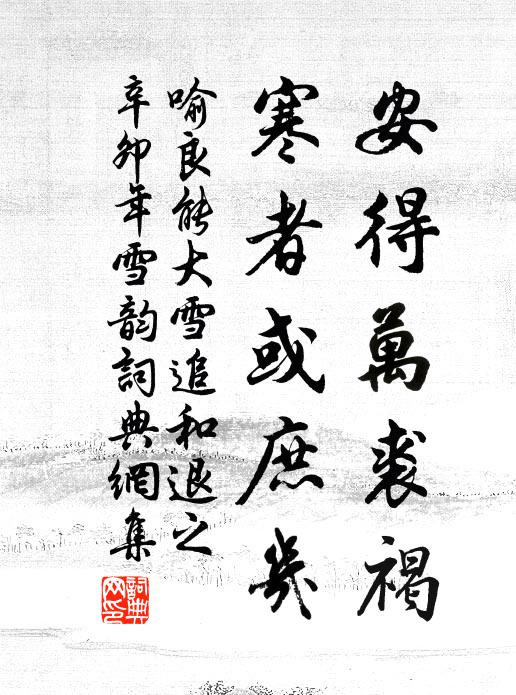 安得萬裘褐
寒者或庶幾
喻良能大雪追和退之
辛卯年雪韵詞典網集
詞典
网印